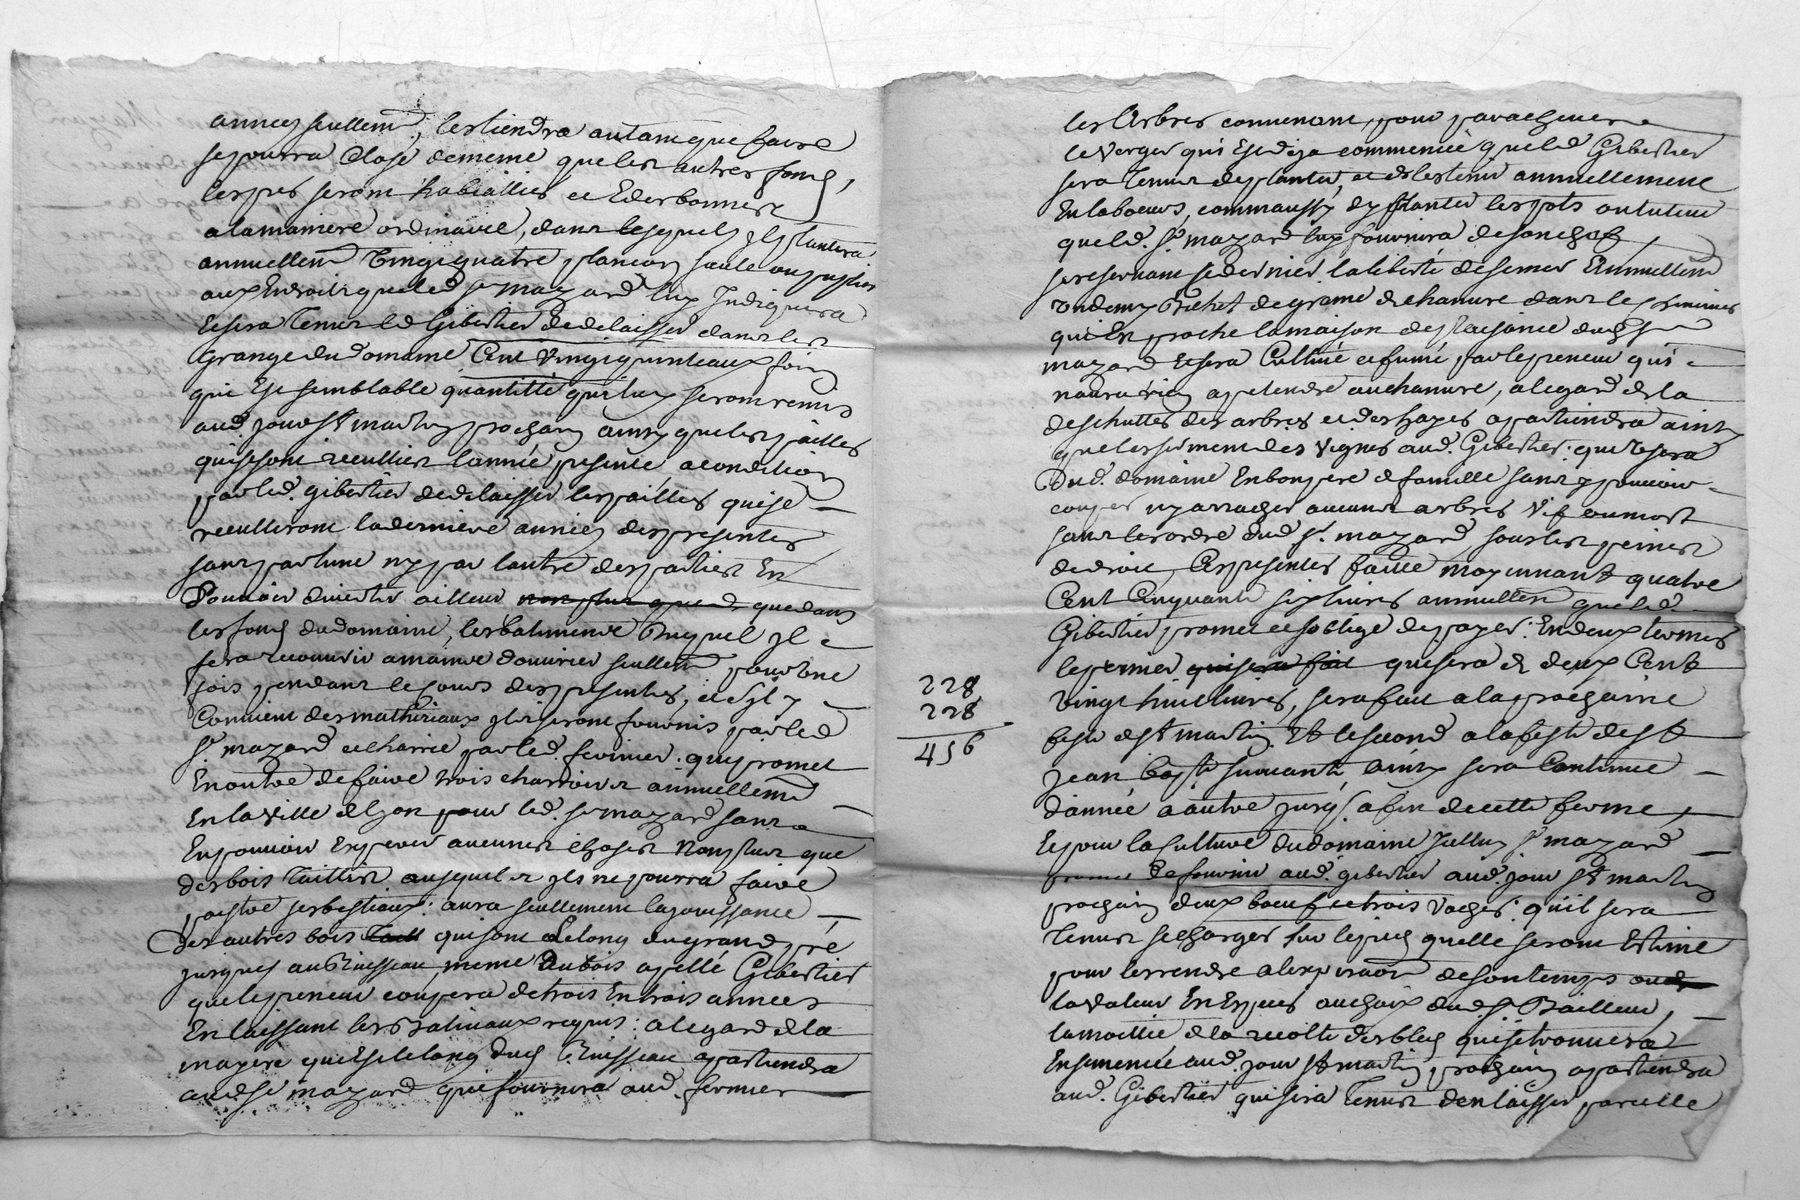 annees seullemt, les tiendra autant que faire
se pourra Clos de meme que les autres fonds,
les pres seront habiallies et Ederbonnes
a la maniere ordinaire, dans lesquels il plantera
annuellemt vingt quatre plancons saule ou peuplier
aux Endroits que led sr mazard luy Indiquera
Et sera Tenus led Gibertier de delaisser dans les
Grange du domaine Cent vingt quinteaux foin
qui Est semblable quantitté que luy seront remis
aud. jour st martin prochain ainsy que les pailles
qui se sont recultier l'année presente a condition
par led. gibertier de delaisser les pailles qui se
reculteront la derniere année des presentes
sans par lune ny par lautre des parties En
Pouvoir divertir ailleur non plus que de que dans
les fonds du domaine, les batiments Duquel il
fera recouvrir a main d'ouvrier seullemt pour une
fois pendant le cours des presentes, et s'il y
Convient des mathériaux ils seront fournis par led
sr. mazard et charrié par led. fermier. qui promet
En outre de faire trois charrois annuellemt
En la ville de lyon pour led. sr mazard sans
En pouvoir Exiger aucunes choses Non plus que
des bois Taillis ausquels il ne pourra faire
paistre ses bestiaux: aura seullement la jouissance
Des autres bois Taill qui sont Le long du grand pré
jusques au Ruisseau meme Du bois apellé Gibertier
que le preneur coupera de trois En trois années
En laissant les Balivaux requis: a legard de la
mayere qui Est le long dud Ruisseau apartiendra
aud sr mazard qui fournira aud. fermier
les Arbres convenant, pour parachever
le Verger qui Est deja commencé que led Gibertier
sera Tenus de planter, et de les tenir annuellement
En laboeurs, comm'aussy dy planter les pots ou tuteur
que led. sr mazard luy fournira de son chef,
se reservant ce dernier la liberté de semer Annuellemt
un demy Bichet de graine de chanvre dans les
qui Est proche la maison de plaisance dud sr
mazard Et sera Cultivé et fumé par le preneur qui
naura rien a pretendre au chanvre, a legard de la
deschuttes des arbres et des hayes apartiendra ainsy
que les serment des Vignes aud. Gibertier: que usera
Dud. domaine En bon pere de famille sans y pouvoir
couper ny arracher aucuns arbres vif ou mort
sans les ordre dud sr. mazard sous les peines
de droit, Ces presentes faitte moyennant quatre
Cent Cinquante six livres annuellemt que led
Gibertier promet et soblige de payer: En deux termes
le premier qui sera fait qui sera de deux Cent
vingt huit livres, sera fait a la prochaine
feste de st martin Et le second a la feste de st
Jean baptiste suivante ainsy sera Continué
d'année a autre jusqs. a fin de cette ferme,
Et pour la Culture du domaine Jcelluy sr mazard
promet de fournir aud. gibertier aud. jour st martin
prochain deux boeufs et trois vaches; qu'il sera
Tenus se charger sur le pied quelle seront Estimé
pour les rendre a lexpiraon de son temps oud
la valeur En Especes au choix dud. sr. Bailleur,
la moittié de la recolte des bleds qui se trouvera
Ensemencée aud. jour st martin prochain apartiendra
aud. Gibertier qui sera Tenus den laisser pareille
228
228
456